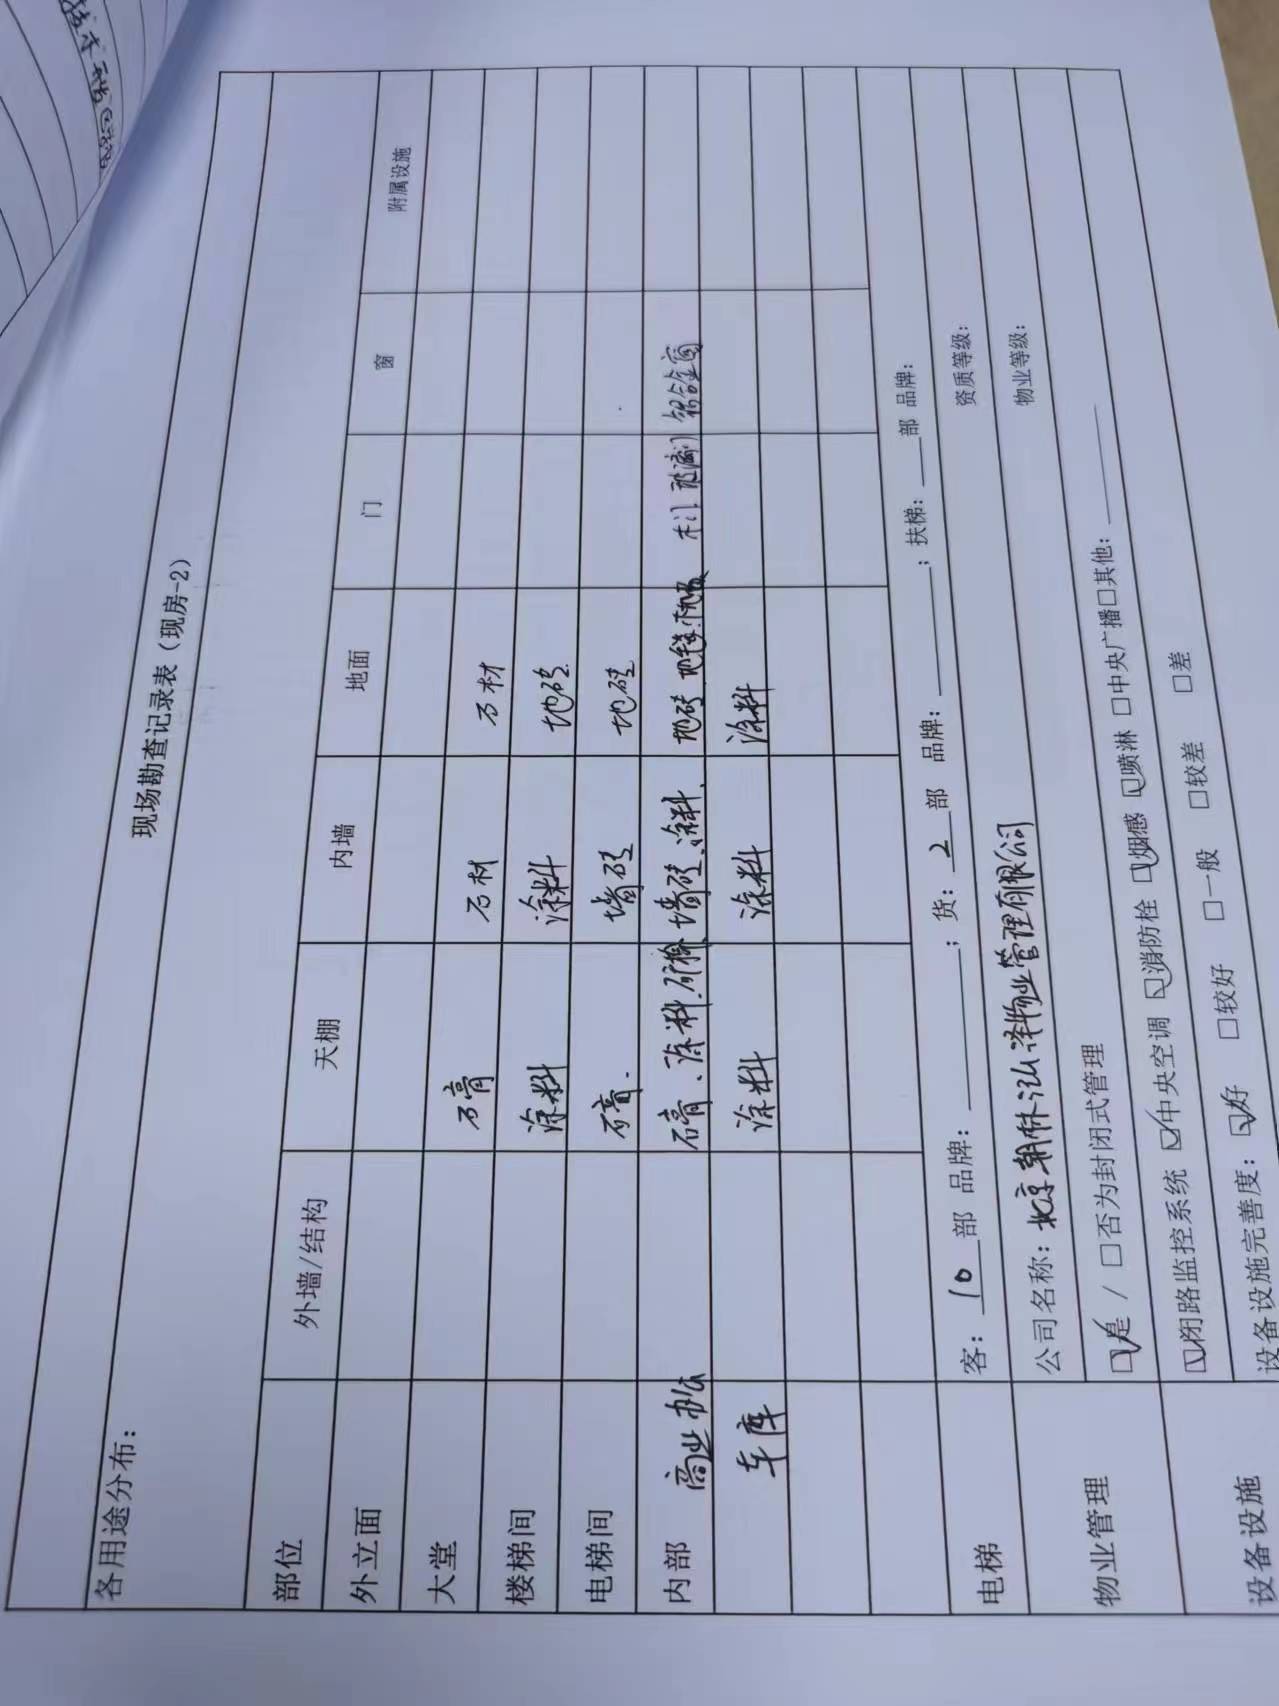 现场勘查记录表（现房-2）
各用途分布：
部位 外墙/结构 天棚 内墙 地面 门 窗 附属设施
外立面
大堂 石膏 石材 石材
楼梯间 涂料 涂料 地砖
电梯间 石膏. 墙砖 地砖
内部 商业办公 石膏、涂料.矿棉 墙砖、涂料. 地砖、地毯.地板 木门.玻璃门 铝合金窗
车库 涂料 涂料 涂料
电梯 客：10部 品牌：；货：2部 品牌：；扶梯：部 品牌：
物业管理 公司名称：北京朝林泓泽物业管理有限公司 资质等级：
☑是/□否为封闭式管理 物业等级：
设备设施 ☑闭路监控系统 ☑中央空调 ☑消防栓 ☑烟感 ☑喷淋 □中央广播□其他：
设备设施完善度：☑好 □较好 □一般 □较差 □差